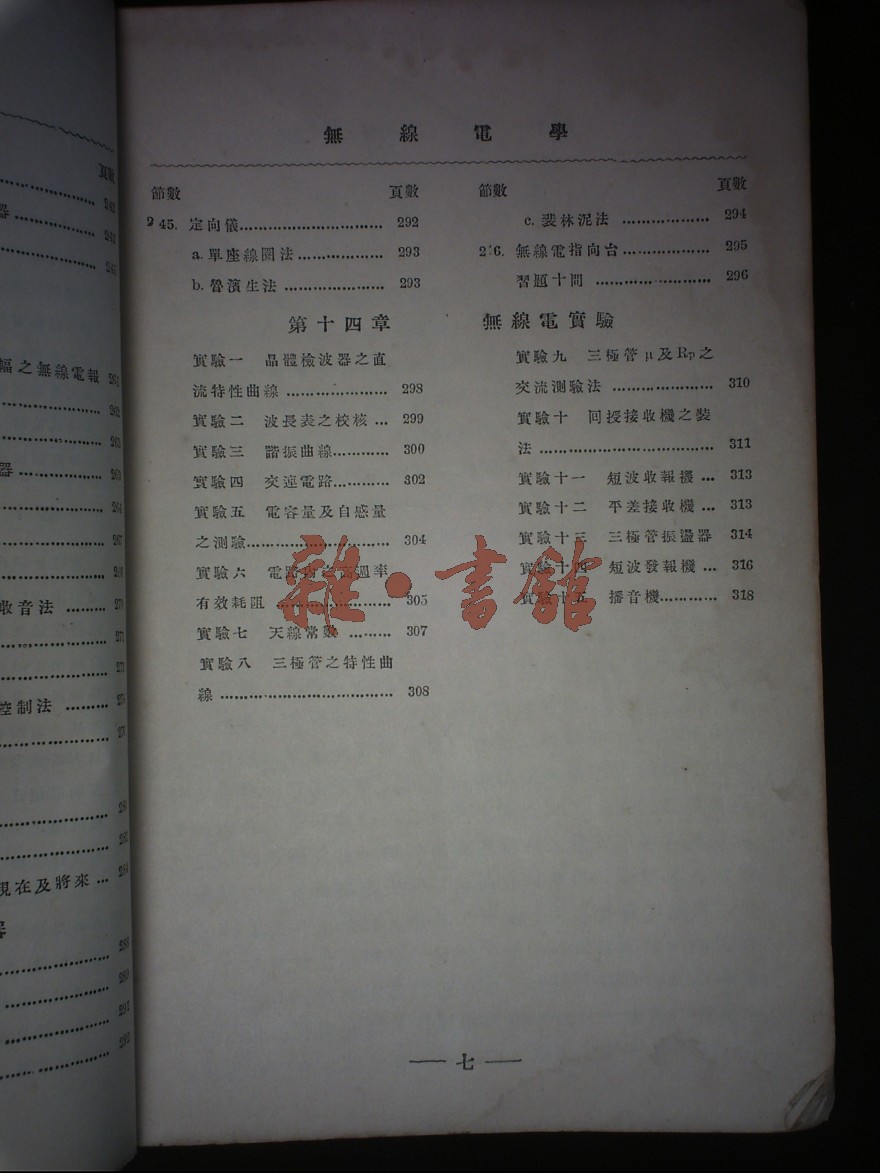 無線電學
節數 頁數
245. 定向儀 .............................. 292
a. 單座線圈法 .................. 293
b. 魯濱生法 ..................... 293
節數 頁數
c. 裴林泥法 .................. 294
2 6. 無線電指向台 .................. 295
習題十問 ........................ 296
第十四章 無線電實驗
實驗一 晶體檢波器之直
流特性曲線 .................. 298
實驗二 波長表之校核 ... 299
實驗三 諧振曲線 ............ 300
實驗四 交連電路 ............ 302
實驗五 電容量及自感量
之測驗 .............................. 304
實驗六 電路 週率
有效耗阻 ........................ 305
實驗七 天線常數 ......... 307
實驗八 三極管之特性曲
線 .................................... 308
實驗九 三極管μ及Rp之
交流測驗法 ..................... 310
實驗十 回授接收機之裝
法 .................................... 311
實驗十一 短波收報機 ... 313
實驗十二 平差接收機 ... 313
實驗十三 三極管振盪器 314
實驗十四 短波發報機 ... 316
實驗十五 播音機 ............ 318
— 七 —
頁數
幅之無線電報
器
收音法
控制法
現在及將來 ...
雜·書館